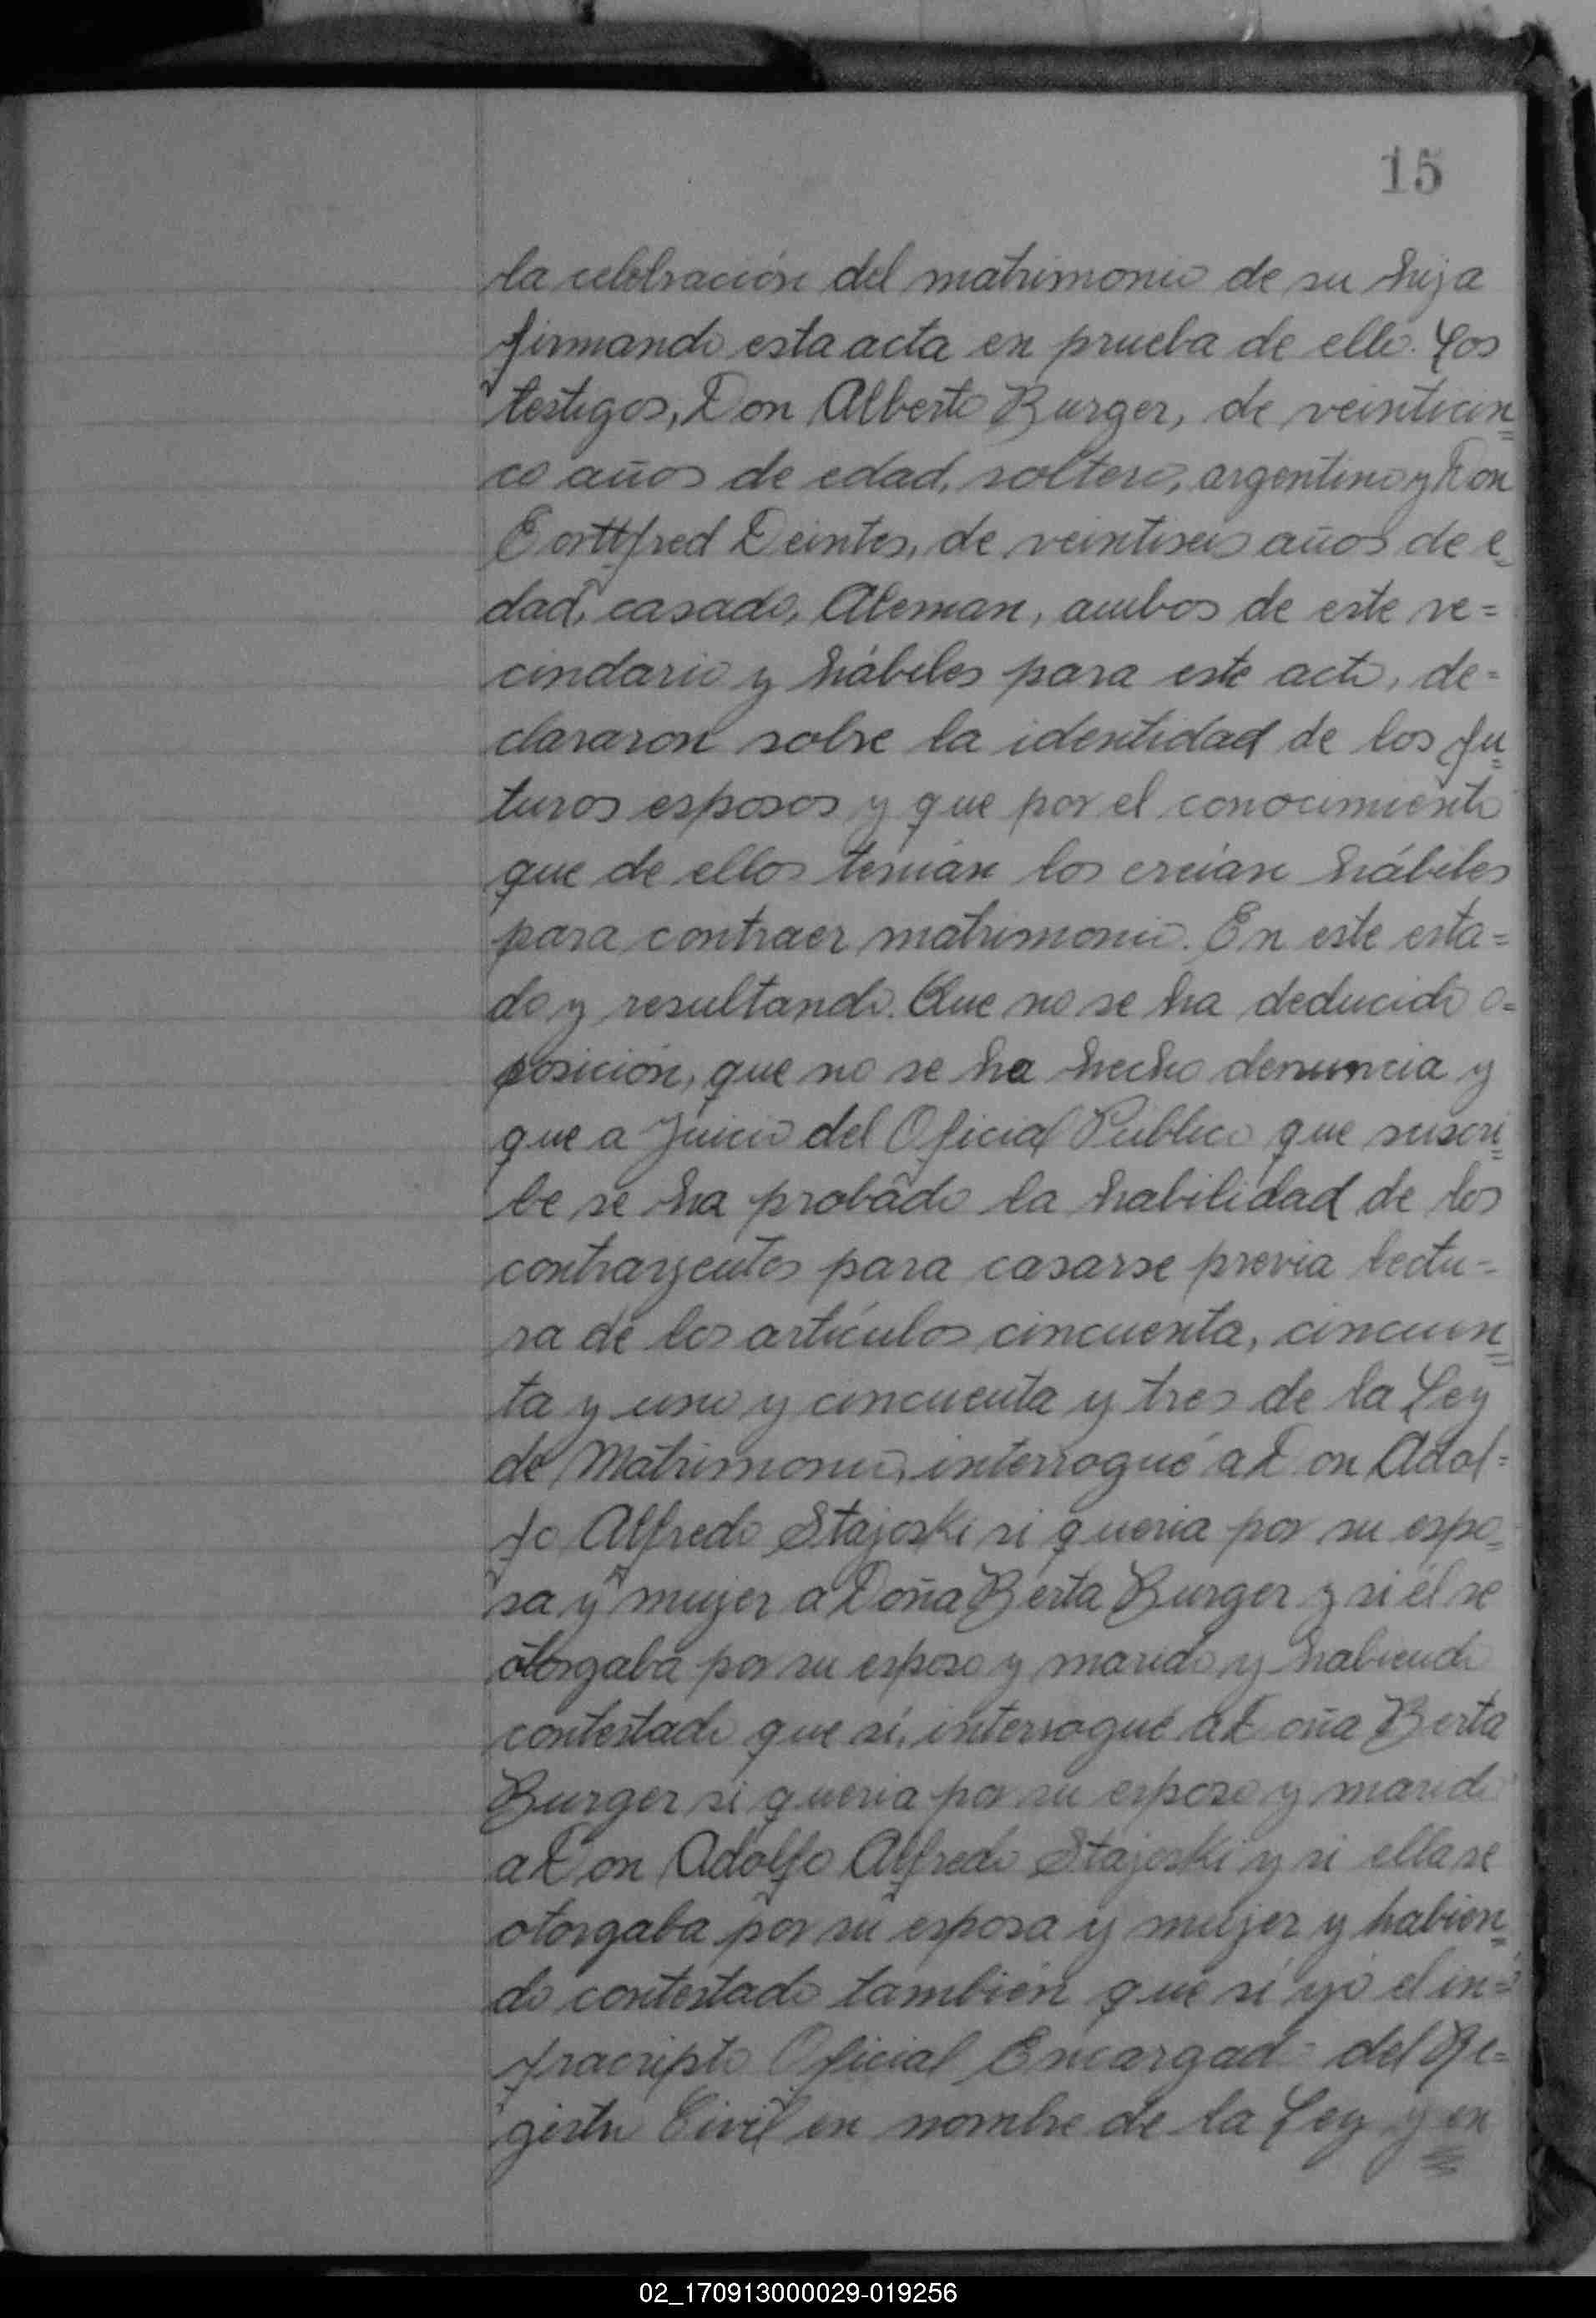 15
la celebración del matrimonio de su hija
firmando esta acta en prueba de ello. Los
testigos, Don Alberto Burger, de veinticin=
co años de edad, soltero, argentino y Don
Gottfred Deintes, de veintiseis años de e=
dad, casado, Aleman, ambos de este ve=
cindario y hábiles para este acto, de=
clararon sobre la identidad de los fu=
turos esposos y que por el conocimiento
que de ellos tenian los creian hábiles
para contraer matrimonio. En este esta=
do y resultando. Que no se ha deducido o=
posición, que no se ha hecho denuncia y
que a Juicio del Oficial Público que suscri=
be se ha probado la habilidad de los
contrayentes para casarse previa lectu=
ra de los artículos cincuenta, cincuen=
ta y uno y cincuenta y tres de la Ley
de Matrimonio, interrogué a Don Adol=
fo Alfredo Stajoski si queria por su espo=
sa y mujer a Doña Berta Burger y si él se
otorgaba por su esposo y marido y habiendo
contestado que sí, interrogué a Doña Berta
Burger si queria por su esposo y marido
a Don Adolfo Alfredo Stajoski y si ella se
otorgaba por su esposa y mujer y habien=
do contestado también que sí yo el in=
fracripto Oficial Encargado del Re=
gistro Civil en nombre de la Ley y en
02_170913000029-019256